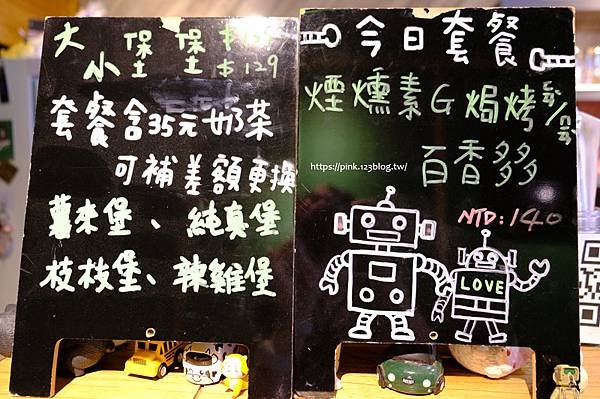 大堡 $159
小堡 $129
套餐含35元奶茶
可補差額更換
薯來堡、純真堡
枝枝堡、辣雞堡
今日套餐
煙燻素G焗烤
百香多多
NTD:140
LOVE
https://pink.123blog.tw/